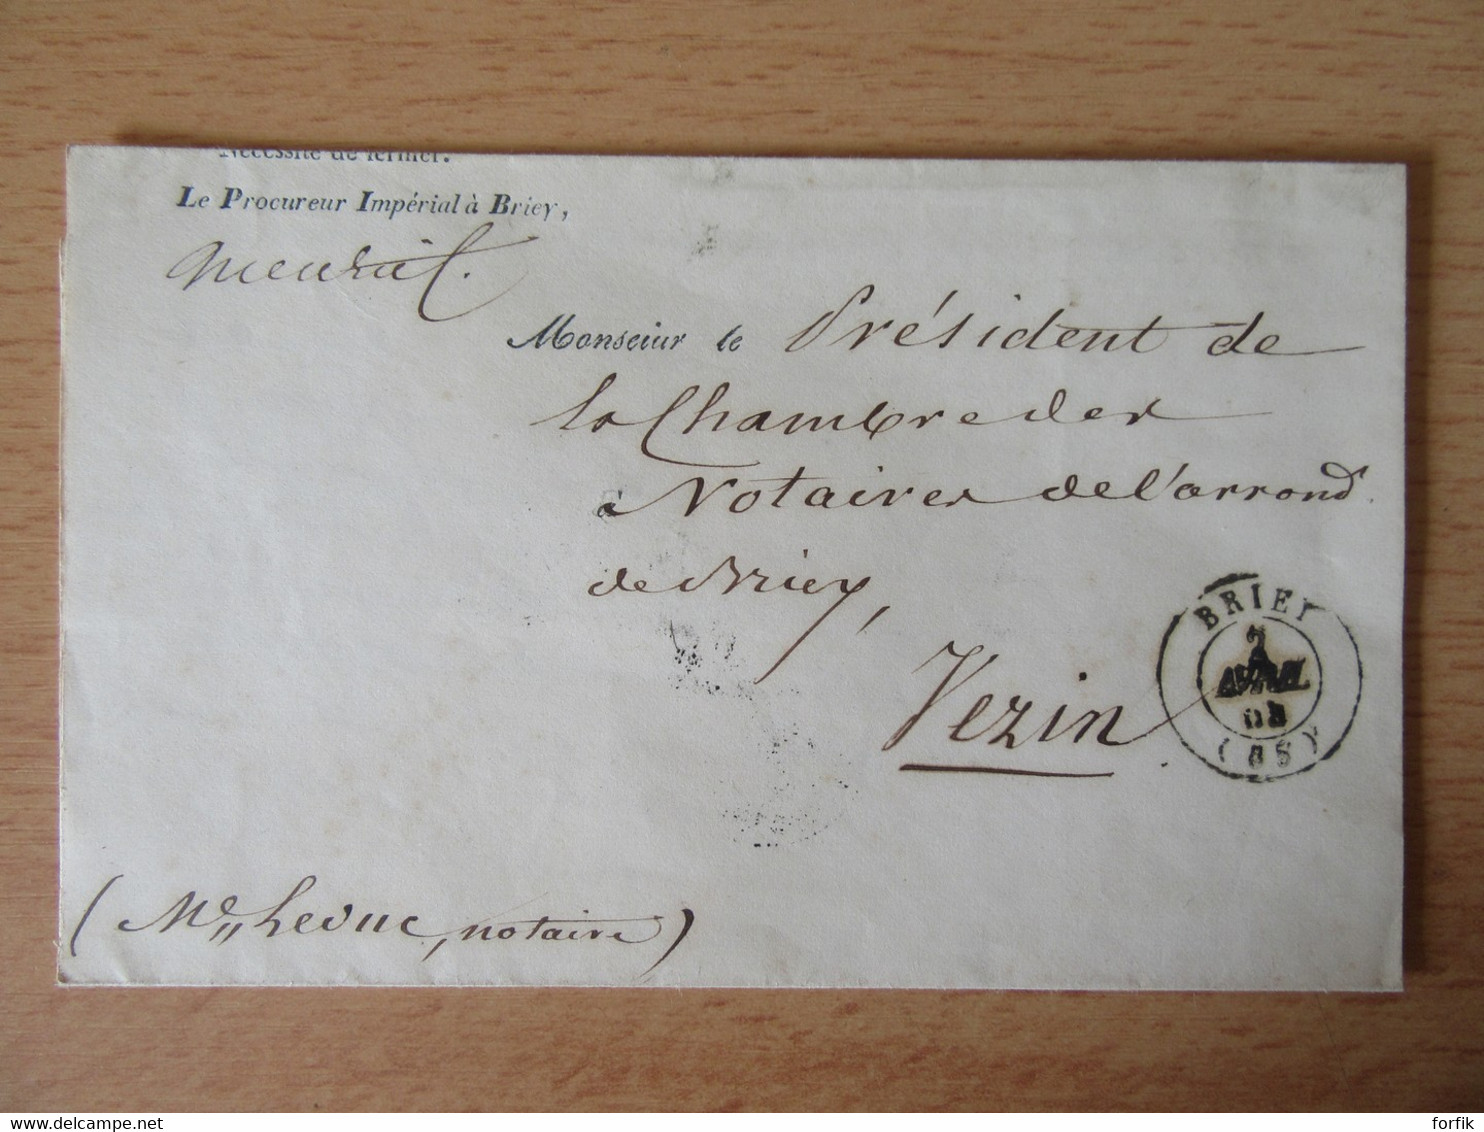 Nécessité de fermer.
Le Procureur Impérial à Briey,
Monseiur le Président de
la Chambre des
à Notaires de l'arrond
de Briey,
Vezin
BRIEY
2
AVRIL
(55)
(Me Leduc, notaire)
www.delcampe.net
forfik